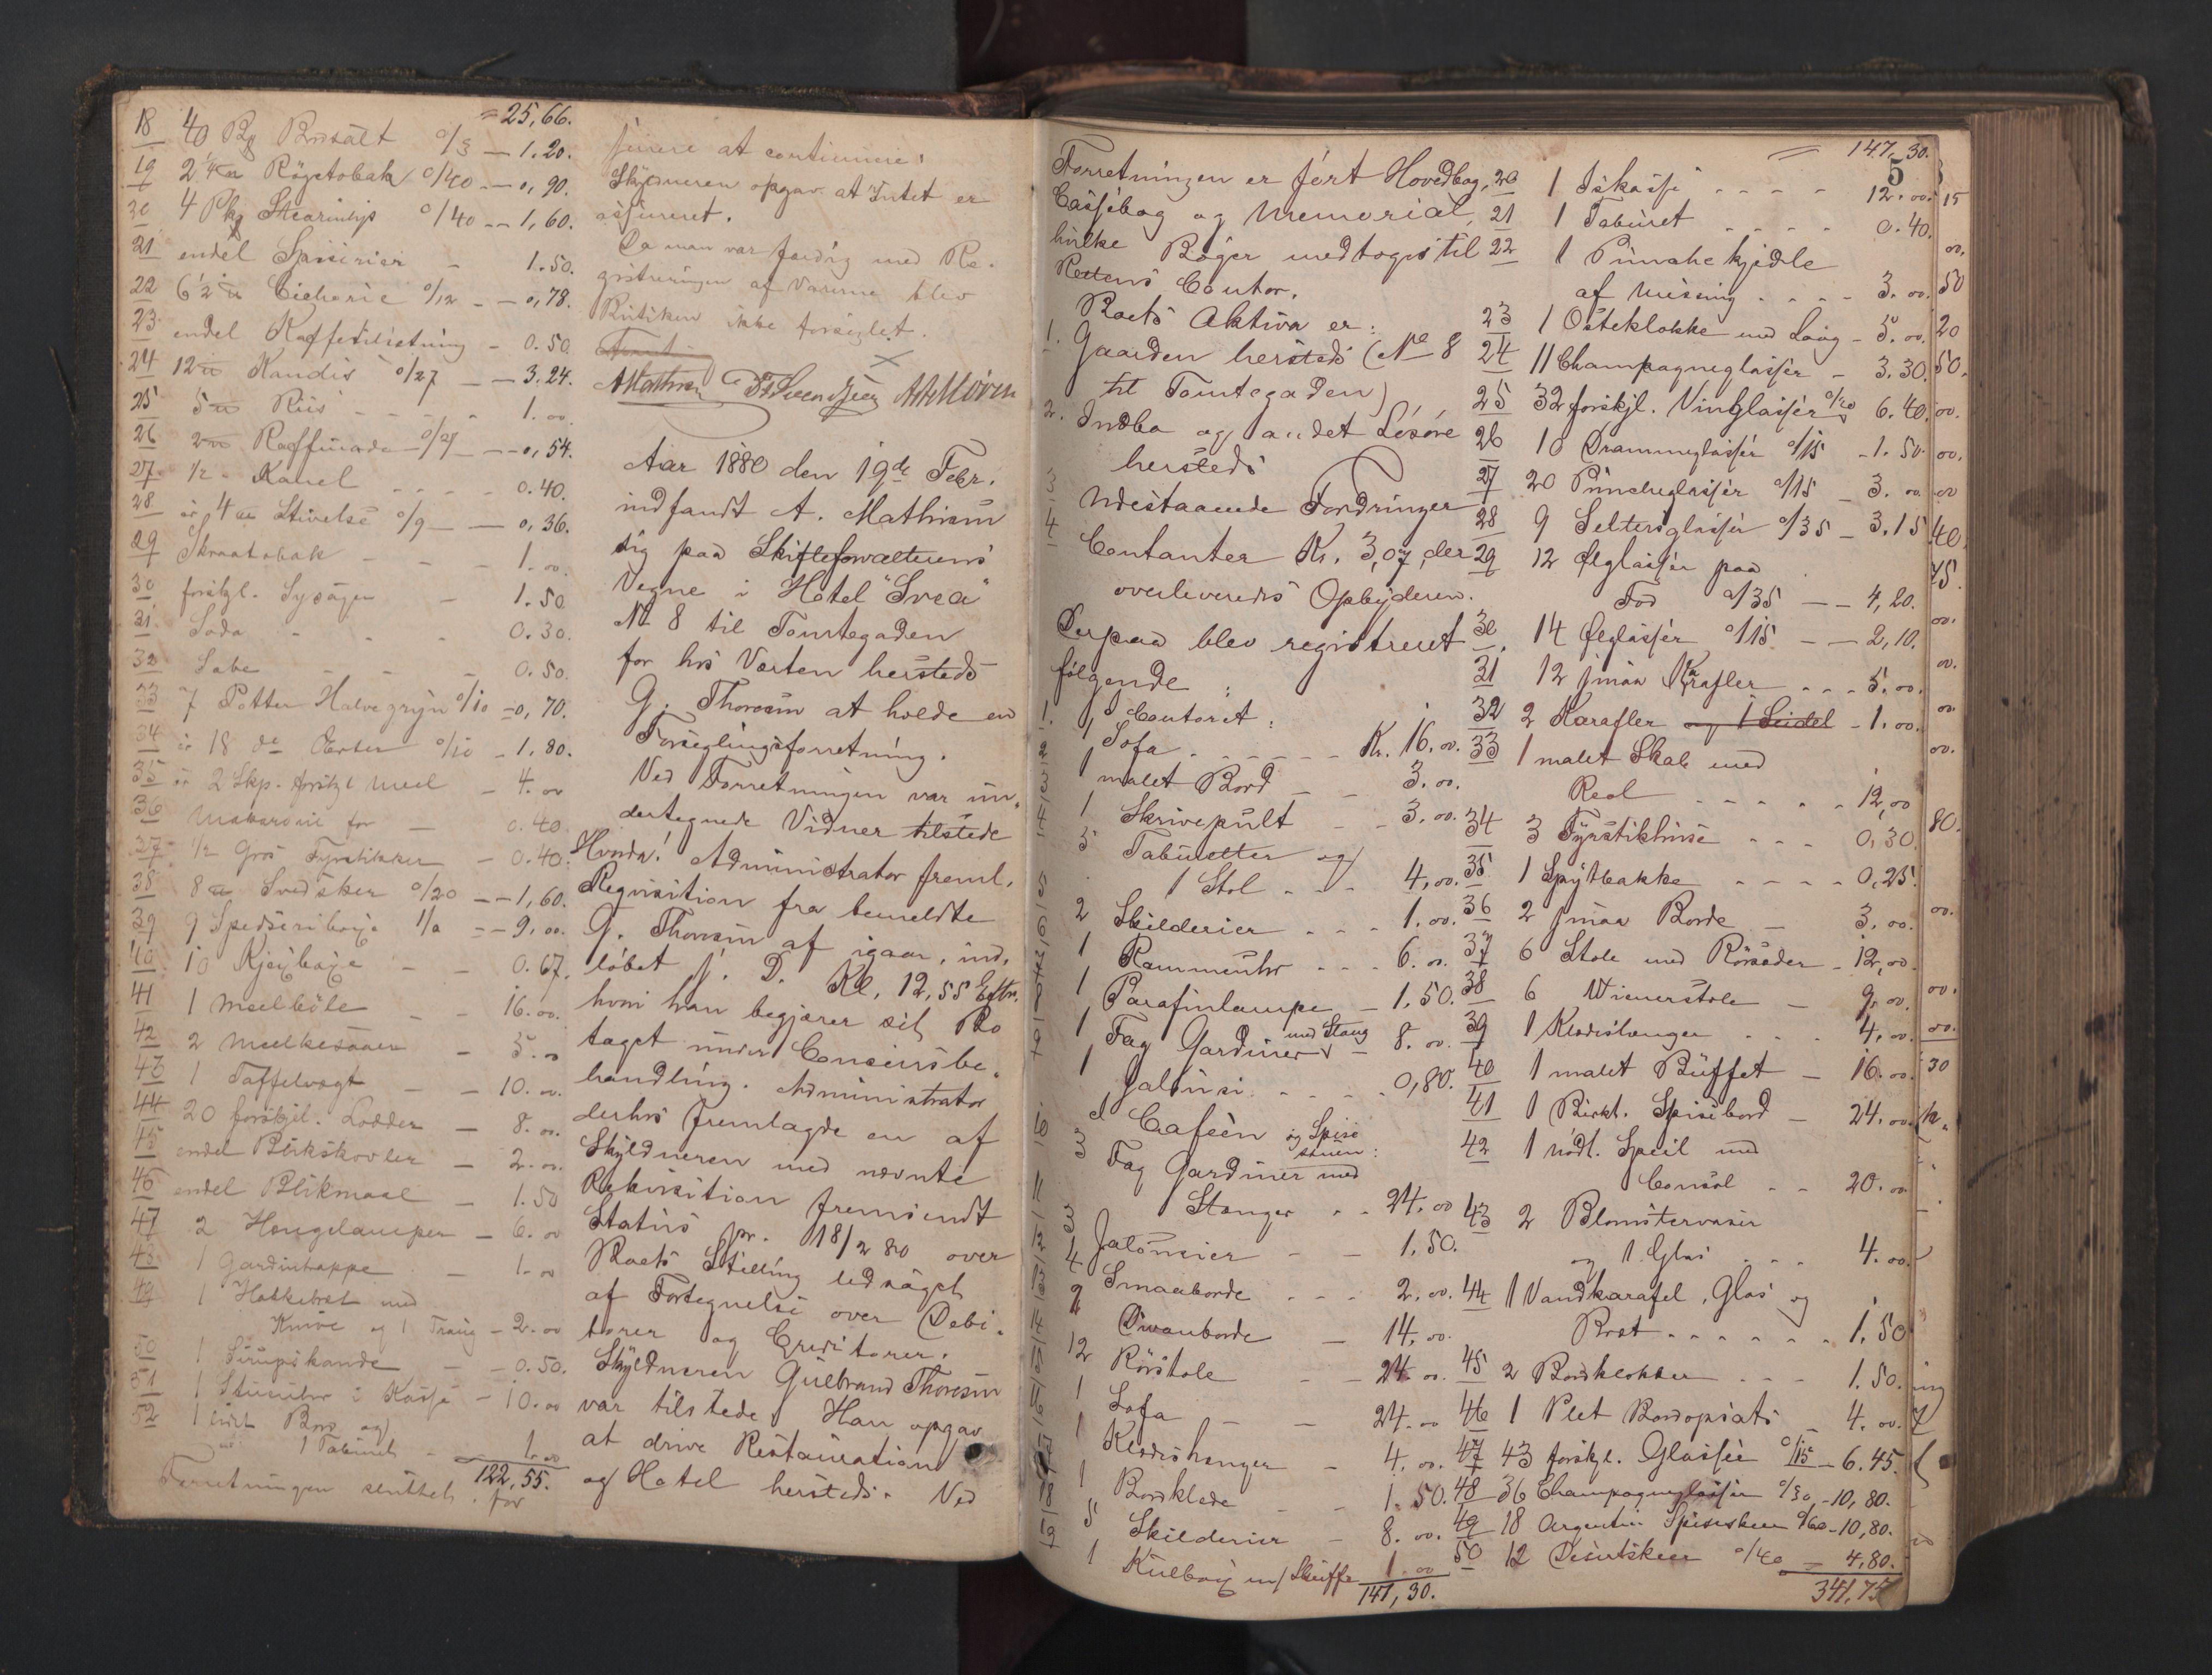 = 25,66.
18 40 Pg Bordsalt a/3 — 1.20.
19 2 1/4 Røgetobak a/40 — 0,90.
20 4 Pkg Stearinlys a/40 — 1,60.
21 endel Spiserier — 1.50.
22 6 1/2 Cichorie a/12 — 0,78.
23 endel Kaffetilsetning — 0.50.
24 12 Kandis a/27 — 3.24.
25 5 Riis — 1.00
26 2 Raffinade a/27 — 0,54.
27 1/2 Kanel — 0.40.
28 ir 4 Stivelse a/9 — 0,36.
29 Skraatobak — 1.00.
30 forskjl. Sysager — 1.50
31 Soda — 0.30.
32 Sæbe — 0.50.
33 7 Potter Havregryn a/10 — 0,70.
34 ir 18 do Ærter a/10 — 1.80.
35 ir 2 Skp. forskjl Meel — 4.00
36 Makaroni for — 0.40
37 1/2 Gros Fyrstikker — 0.40.
38 8 Svedsker a/20 — 1,60.
39 9 Spedseribøxe 1/a — 9,00.
40 10 Kjexboxe — 0.67.
41 1 Meelbøle — 16.00.
42 2 Meelkesaaer — 5.00
43 1 Taffelvægt — 10.00.
44 20 forskjel. Lodder — 8.00.
45 endel Blikskovler — 2.00.
46 endel Blikmaal — 1.50
47 2 Hængelamper — 6.00
48 1 Gardintrappe — 1.00
49 1 Hakkebræt med
Knive og 1 Traug — 2.00
50 1 Sirupskande — 0.50.
51 1 Stueuhr i Kasse — 10.00
52 1 lidet Bord og
1 Taburet — 1.00
122,55.
Forretningen sluttet. for
finere at continuere.
Skyldneren opgav at Intet er
assureret.
Da man var færdig med Re-
gistreringen af Varerne blev
Butiken ikke forseglet.
A Mathisen
Aar 1880 den 19de Febr.
indfandt A. Mathisen
sig paa Skifteforvalterens
Vegne i Hotel "Svea"
No 8 til Tomtegaden
for hos Værten hersteds
G. Thoresen at holde en
Forseglingsforretning.
Ved Forretningen var un-
dertegnede Vidner tilstede
Hvorda! Administrator freml.
Reqvisition fra bemeldte
G. Thoresen af igaar, ind-
løbet s. D. Kl. 12,55 Eftm.
hvori han begjærer sit Bo
taget under Concursbe-
handling. Administrator
derhos fremlagde en af
Skyldneren med nævnte
Rekvisition fremsendt
Status pr. 18/2 80 over
Boets Stilling ledsaget
af Fortegnelse over Debi-
torer og Creditorer.
Skyldneren Gulbrand Thoresen
var tilstede. Han opgav
at drive Restauration
og Hotel hersteds. Ved
5
Forretningen er ført Hovedbog,
Cassebog og Memorial,
hvilke Bøger medtoges til
Rettens Contor.
Boets Aktiva er:
1. Gaarden hersteds (No 8
til Tomtegaden)
2. Indbo og andet Løsøre
hersteds
3 Udestaaende Fordringer
4 Contanter Kr. 3,07, der
overleveredes Opbyderen.
Derpaa blev registreret
følgende:
I Contoret:
1. 1 Sofa — Kr. 16.00.
2 1 malet Bord — 3.00.
3 1 Skrivepult — 3.00.
4 3 Taburetter og
1 Stol — 4,00.
5 2 Skilderier — 1.00.
6 1 Rammeuhr — 6.00.
7 1 Parafinlampe — 1.50.
8 1 Fag Gardiner med Stang — 8.00.
9 1 Jalousi — 0,80.
I Cafeèn og Spise
stuen:
10 3 Fag Gardiner med
Stanger — 24.00
11 3 Jalousier — 1.50.
12 4 Smaaborde — 2.00.
13 2 Divanborde — 14.00.
14 12 Rørstole — 24.00.
15 1 Sofa — 24.00
16 1 Klædeshænger — 4.00.
17 1 Bordklæde — 1.50.
18 5 Skilderier — 8.00.
19 1 Kulboxe m/ Skuffe 1.00
147,30.
= 147,30.
20 1 Iskasse — 12.00.
21 1 Taburet — 0.40.
22 1 Punschekjedle
af Messing — 3.00.
23 1 Osteklokke med Laag — 5.00.
24 11 Champagneglasser — 3.30.
25 32 forskjl. Vinglasser a/20 6.40.
26 10 Drammeglasser a/15 — 1.50.
27 20 Puncheglasser a/15 — 3.00
28 9 Seltersglasser a/35 — 3.15
29 12 Ølglasser paa
Fod a/35 — 4,20.
30 14 Ølglasser a/15 — 2,10.
31 12 smaa Karafler — 5.00.
32 2 Karafler og 1 Seidel — 1.00.
33 1 malet Skab med
Reol — 12,00
34 3 Fyrstikhuse — 0,30.
35 1 Spytbakke — 0,25.
36 2 smaa Borde — 3.00.
37 6 Stole med Rørsæder — 12,00.
38 6 Wienerstole — 9.00.
39 1 Klædeshænger — 4.00.
40 1 malet Büffet — 16.00.
41 1 Birkt. Spisebord — 24.00
42 1 nødt. Speil med
Consol — 20.00
43 2 Blomstervaser
og 1 Glas — 4.00.
44 1 Vandkarafel, Glas og
Bræt — 1.50
45 2 Bordklokker — 1.50.
46 1 Plet Bordopsats 4.00.
47 43 forskjl. Glasser a/15 — 6.45.
48 36 Champagneglasser a/30 — 10,80.
49 18 Argentin Spiseskeer a/60 — 10,80.
50 12 Desertskeer a/40 = 4,80.
341,75